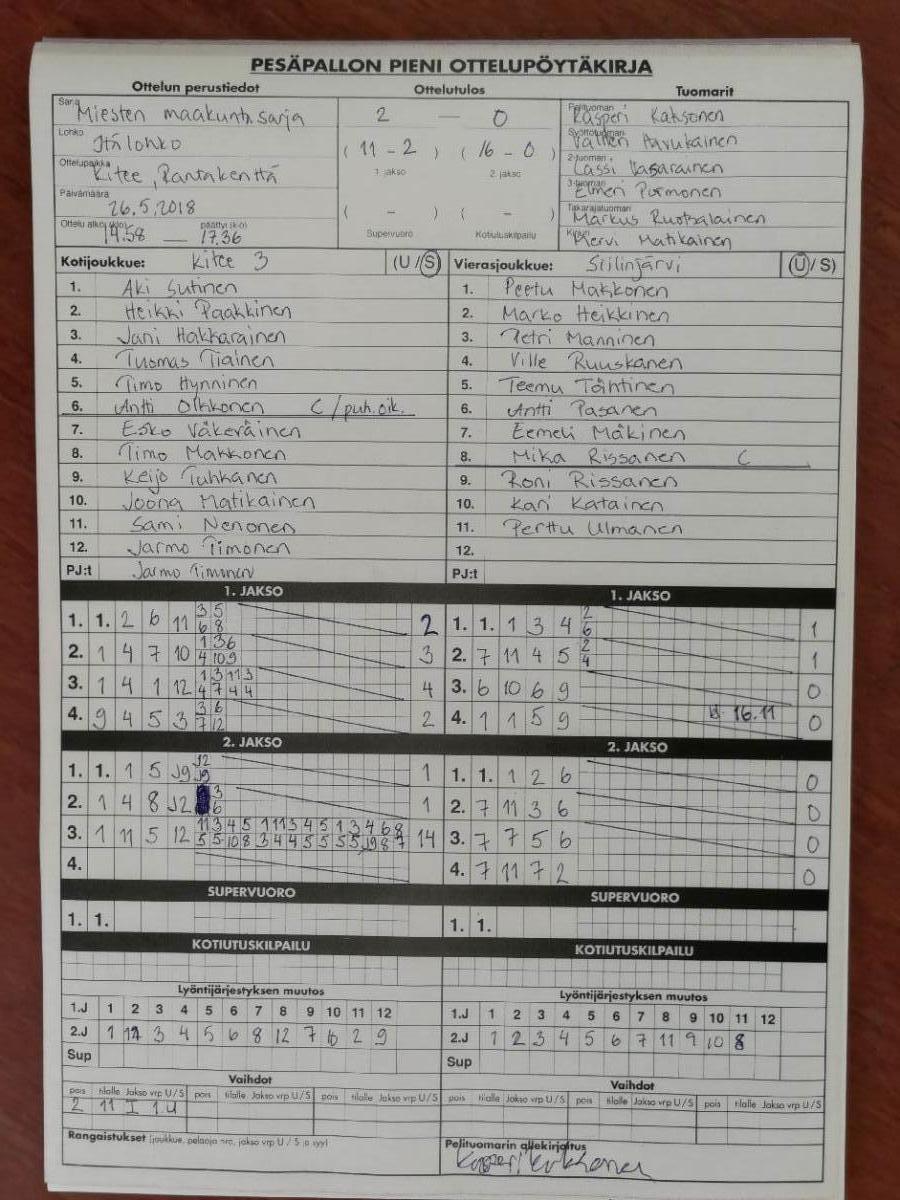 PESÄPALLON PIENI OTTELUPÖYTÄKIRJA
Ottelun perustiedot Ottelutulos Tuomarit
Sarja Miesten maakuntasarja 2 — 0 Pelituomari Kasperi
Lohko Itälohko (11 - 2) (16 - 0)
Ottelupaikka Kitee, Rantakenttä 1. jakso 2. jakso 2-tuomari Lassi
Päivämäärä 26.5.2018 3-tuomari Elmeri
Ottelu alkoi (klo) 14.58 — päättyi (klo) 17.36 ( - ) ( - ) Takarajatuomari Markus Ruotsalainen
Supervuoro Kotiutuskilpailu Kirjuri Mervi Matikainen
Kotijoukkue: Kitee 3 (U / S) Vierasjoukkue: Siilinjärvi (U / S)
1. Aki Sutinen 1. Peetu Makkonen
2. Heikki Paakkinen 2. Marko Heikkinen
3. Jani Hakkarainen 3. Petri Manninen
4. Tuomas Tiainen 4. Ville Ruuskanen
5. Timo Hynninen 5. Teemu Tähtinen
6. Antti Olkkonen C / puh.oik. 6. Antti Pasanen
7. Esko Väkeräinen 7. Eemeli Mäkinen
8. Timo Makkonen 8. Mika Rissanen C
9. Keijo Tuhkanen 9. Roni Rissanen
10. Joona Matikainen 10. Kari Katainen
11. Sami Nenonen 11. Perttu Ulmanen
12. Jarmo Timonen 12.
PJ:t Jarmo Timonen PJ:t
1. JAKSO 1. JAKSO
1. 1. 2 6 11 3 5 2 1. 1. 1 3 4 2 1
6 8 6
2. 1 4 7 10 1 3 6 3 2. 7 11 4 5 2 1
4 10 9 4
3. 1 4 1 12 1 3 11 3 4 3. 6 10 6 9 0
4 7 4 4
4. 9 4 5 3 3 6 2 4. 1 1 5 9 16.11 0
7 12
2. JAKSO 2. JAKSO
1. 1. 1 5 J9 J2 1 1. 1. 1 2 6 0
J9
2. 1 4 8 J2 3 1 2. 7 11 3 6 0
6
3. 1 11 5 12 11 3 4 5 1 11 3 4 5 1 3 4 6 8 14 3. 7 7 5 6 0
5 5 10 8 3 4 4 5 5 5 5 J9 8 7
4. 4. 7 11 7 2 0
SUPERVUORO SUPERVUORO
1. 1. 1. 1.
KOTIUTUSKILPAILU KOTIUTUSKILPAILU
Lyöntijärjestyksen muutos Lyöntijärjestyksen muutos
1.J 1 2 3 4 5 6 7 8 9 10 11 12 1.J 1 2 3 4 5 6 7 8 9 10 11 12
2.J 1 11 3 4 5 6 8 12 7 10 2 9 2.J 1 2 3 4 5 6 7 11 9 10 8
Sup Sup
Vaihdot Vaihdot
pois tilalle Jakso vrp U/S pois tilalle Jakso vrp U/S pois tilalle Jakso vrp U/S pois tilalle Jakso vrp U/S pois tilalle Jakso vrp U/S pois tilalle Jakso vrp U/S
2 11 I 1 U
Rangaistukset (joukkue, pelaaja nro, jakso vrp U / S ja syy) Pelituomarin allekirjoitus